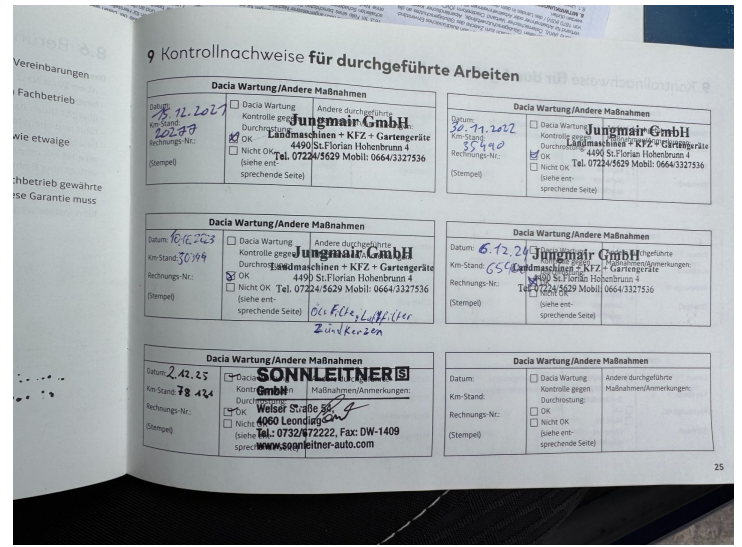 Vereinbarungen
Fachbetrieb
wie etwaige
chbetrieb gewährte
ese Garantie muss
9 Kontrollnachweise für durchgeführte Arbeiten
Dacia Wartung/Andere Maßnahmen
Datum: 15.12.2021
Km-Stand: 20277
Rechnungs-Nr.:
(Stempel)
Dacia Wartung
Kontrolle gegen
Durchrostung:
OK
Nicht OK
(siehe ent-
sprechende Seite)
Andere durchgeführte
Jungmair GmbH
Landmaschinen + KFZ + Gartengeräte
4490 St.Florian Hohenbrunn 4
Tel. 07224/5629 Mobil: 0664/3327536
Dacia Wartung/Andere Maßnahmen
Datum: 30.11.2022
Km-Stand: 35490
Rechnungs-Nr.:
(Stempel)
Dacia Wartung
Kontrolle gegen
Durchrostung:
OK
Nicht OK
(siehe ent-
sprechende Seite)
Jungmair GmbH
Landmaschinen + KFZ + Gartengeräte
4490 St.Florian Hohenbrunn 4
Tel. 07224/5629 Mobil: 0664/3327536
Dacia Wartung/Andere Maßnahmen
Datum:
Km-Stand:
Rechnungs-Nr.:
(Stempel)
Dacia Wartung
Kontrolle gegen
OK
Nicht OK
(siehe ent-
sprechende Seite)
Andere durchgeführte
Jungmair GmbH
Landmaschinen + KFZ + Gartengeräte
4490 St.Florian Hohenbrunn 4
Tel. 07224/5629 Mobil: 0664/3327536
Luftfilter
Zündkerzen
Dacia Wartung/Andere Maßnahmen
Datum: 6.12.24
Km-Stand:
Rechnungs-Nr.:
(Stempel)
Nicht OK
(siehe ent-
sprechende Seite)
Maßnahmen/Anmerkungen:
Jungmair GmbH
Landmaschinen + KFZ + Gartengeräte
4490 St.Florian Hohenbrunn 4
Tel. 07224/5629 Mobil: 0664/3327536
Dacia Wartung/Andere Maßnahmen
Datum: 2.12.25
Km-Stand: 78 121
Rechnungs-Nr.:
(Stempel)
OK
Maßnahmen/Anmerkungen:
SONNLEITNER S
GmbH
Welser Straße
4060 Leonding
Tel.: 0732/672222, Fax: DW-1409
www.sonnleitner-auto.com
Dacia Wartung/Andere Maßnahmen
Datum:
Km-Stand:
Rechnungs-Nr.:
(Stempel)
Dacia Wartung
Kontrolle gegen
Durchrostung:
OK
Nicht OK
(siehe ent-
sprechende Seite)
Andere durchgeführte
Maßnahmen/Anmerkungen:
25